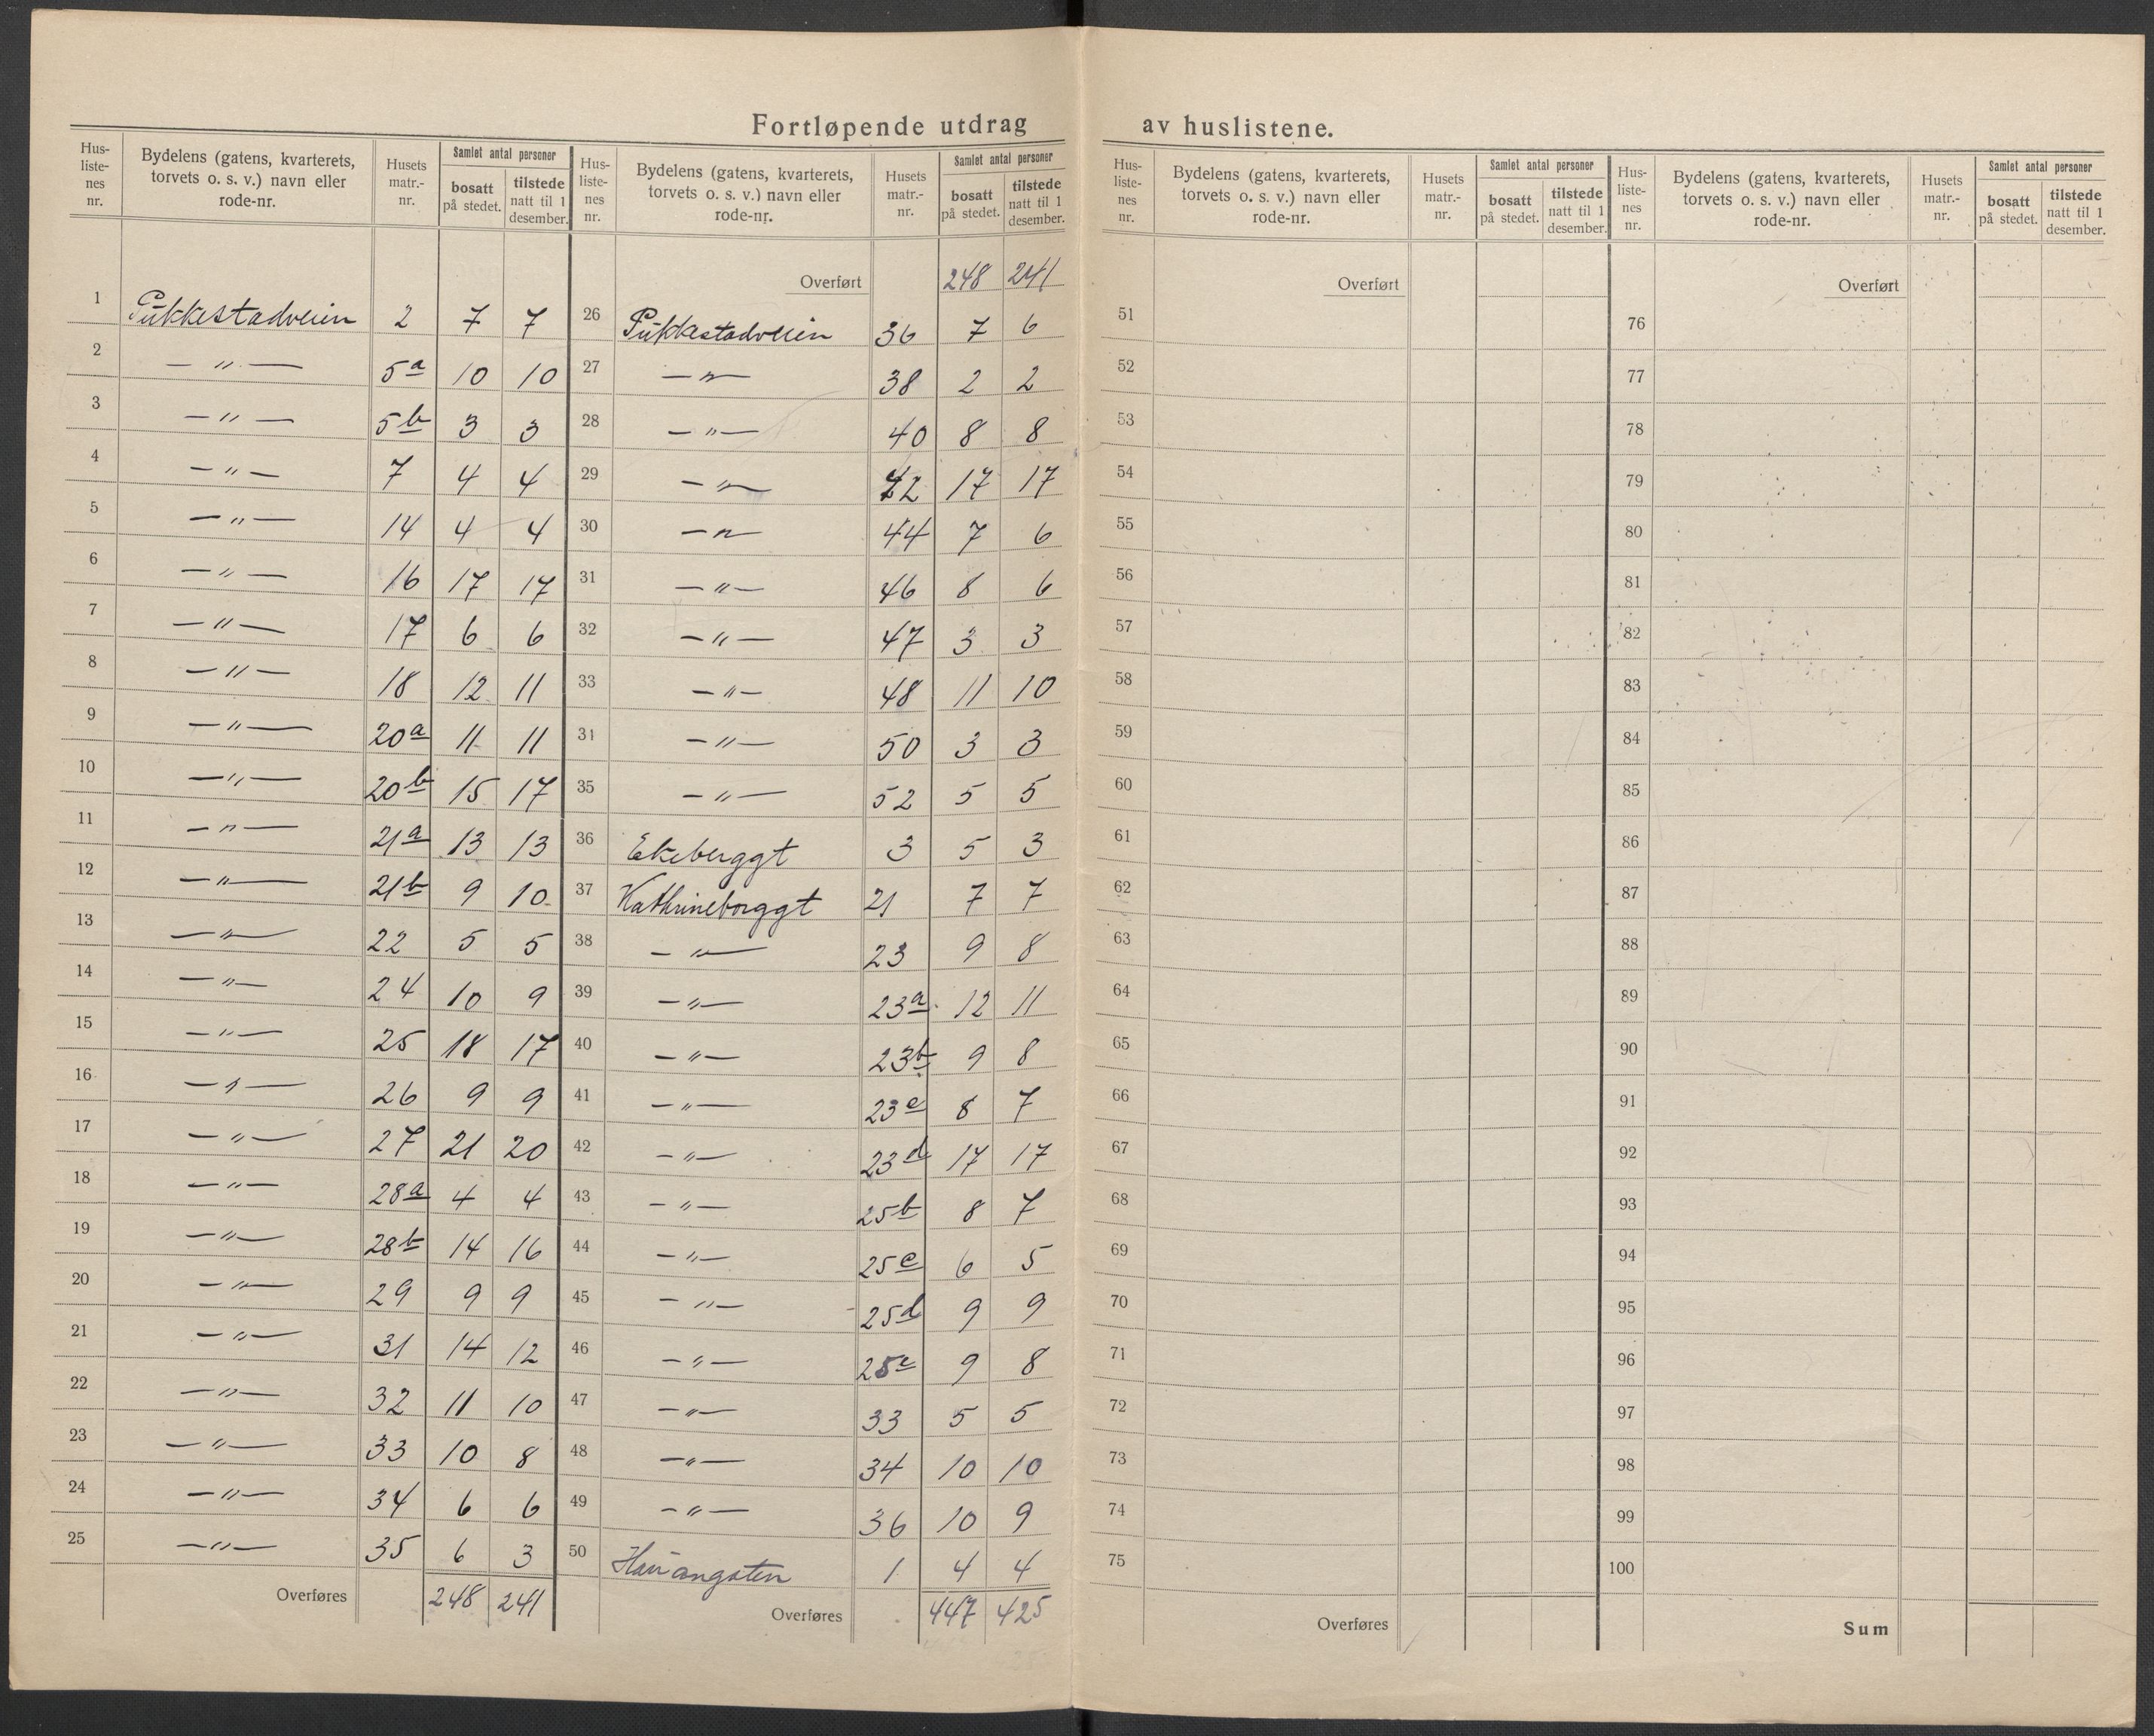 Fortløpende utdrag av huslistene.
Hus-liste-nes nr. | Bydelens (gatens, kvarterets, torvets o. s. v.) navn eller rode-nr. | Husets matr.-nr. | Samlet antal personer bosatt på stedet. | tilstede natt til 1 desember.
1 Pukkestadveien 2 7 7
2 — " — 5a 10 10
3 — " — 5b 3 3
4 — " — 7 4 4
5 — " — 14 4 4
6 — " — 16 17 17
7 — " — 17 6 6
8 — " — 18 12 11
9 — " — 20a 11 11
10 — " — 20b 15 17
11 — " — 21a 13 13
12 — " — 21b 9 10
13 — " — 22 5 5
14 — " — 24 10 9
15 — " — 25 18 17
16 — " — 26 9 9
17 — " — 27 21 20
18 — " — 28a 4 4
19 — " — 28b 14 16
20 — " — 29 9 9
21 — " — 31 14 12
22 — " — 32 11 10
23 — " — 33 10 8
24 — " — 34 6 6
25 — " — 35 6 3
Overføres 248 241
Hus-liste-nes nr. | Bydelens (gatens, kvarterets, torvets o. s. v.) navn eller rode-nr. | Husets matr.-nr. | Samlet antal personer bosatt på stedet. | tilstede natt til 1 desember.
Overført 248 241
26 Pukkestadveien 36 7 6
27 — " — 38 2 2
28 — " — 40 8 8
29 — " — 42 17 17
30 — " — 44 7 6
31 — " — 46 8 6
32 — " — 47 3 3
33 — " — 48 11 10
31 — " — 50 3 3
35 — " — 52 5 5
36 Ekeberggt 3 5 3
37 Kathrineborggt 21 7 7
38 — " — 23 9 8
39 — " — 23a 12 11
40 — " — 23b 9 8
41 — " — 23c 8 7
42 — " — 23d 17 17
43 — " — 25b 8 7
44 — " — 25c 6 5
45 — " — 25d 9 9
46 — " — 25e 9 8
47 — " — 33 5 5
48 — " — 34 10 10
49 — " — 36 10 9
50 1 4 4
Overføres 447 425
Hus-liste-nes nr. | Bydelens (gatens, kvarterets, torvets o. s. v.) navn eller rode-nr. | Husets matr.-nr. | Samlet antal personer bosatt på stedet. | tilstede natt til 1 desember.
Overført
51
52
53
54
55
56
57
58
59
60
61
62
63
64
65
66
67
68
69
70
71
72
73
74
75
Overføres
Hus-liste-nes nr. | Bydelens (gatens, kvarterets, torvets o. s. v.) navn eller rode-nr. | Husets matr.-nr. | Samlet antal personer bosatt på stedet. | tilstede natt til 1 desember.
Overført
76
77
78
79
80
81
82
83
84
85
86
87
88
89
90
91
92
93
94
95
96
97
98
99
100
Sum